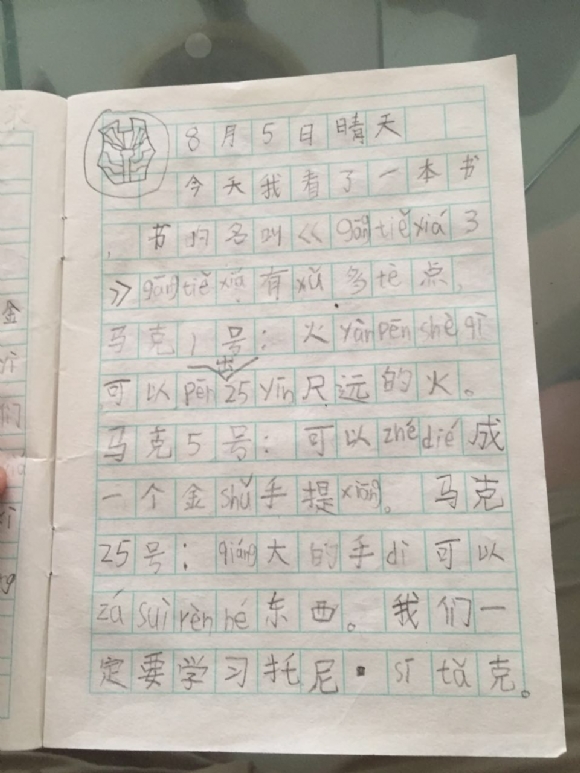 8月5日晴天
今天我看了一本书
,书的名叫《gāngtiěxiá3
》gāngtiěxiá有xǔ多tè点,
马克1号：火yànpēnshèqì
可以pēn出25yīn尺远的火。
马克5号：可以zhédié成
一个金shǔ手提xiāng。马克
25号：qiáng大的手dì可以
zásuìrènhé东西。我们一
定要学习托尼·sītǎ克。